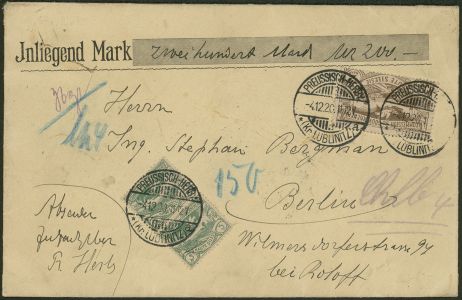 Jnliegend Mark zweihundert Mark Mr 200.-
PREUSSISCH-HERBY
-4.12.20.
(Kr. LUBLINITZ)
PREUSSISCH-
(Kr. LUBLINITZ)
Herrn
Ing. Stephan Bergman
150
PREUSSISCH-HERBY
-4.12.20.
(Kr. LUBLINITZ)
Berlin
Wilmersdorferstrasse 94
bei Roloff
Absender
Pr Herby